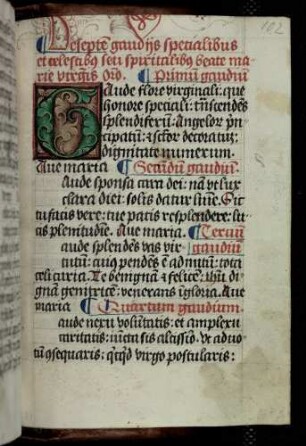 De septē gaudijs specialibus
et celestibus seu spūalibus beate ma
rie virgīs Oīō. Primū gaudiū
Gaude flore virginali: que
honore speciali: trāscendēs
splendiferū: Angelor p̄n
cipatū: et sctōr decoratū:
dignitate numerum.
Aue maria Secundū gaudiū.
Gaude sponsa cara dei: nā ve lux
clara diei: solis datur lumē. Sic
tu facis vere: tue pacis resplendere: lu
cis plenitudiē. Aue maria. Terciū
Gaude splendēs vas vir gaudiū
tutū: cuiꝰ pendēs ē ad nutū: tota
celi curia. Te benignā et felicē: ihū di
gnā genitricē: venerans ī gloria. Aue
maria Quartum gaudium.
Gaude nexu volūtatis: et amplexu
caritatis: iūcta sis altissīo. Ut ad vo
tū ꝯsequaris: quicqd virgo postularis: